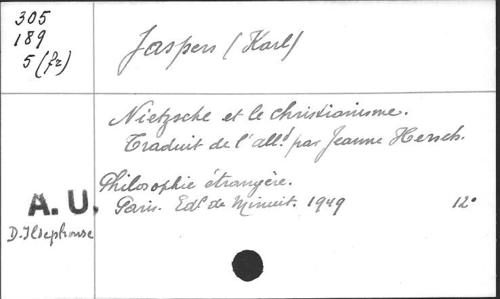 305
189
5 (fr)
Jaspers (Karl)
Nietzsche et le christianisme.
Traduit de l'alld par Jeanne Hersch.
Philosophie étrangère.
Paris. Edt de Minuit. 1949 12°
A. U.
D. Ildephonse